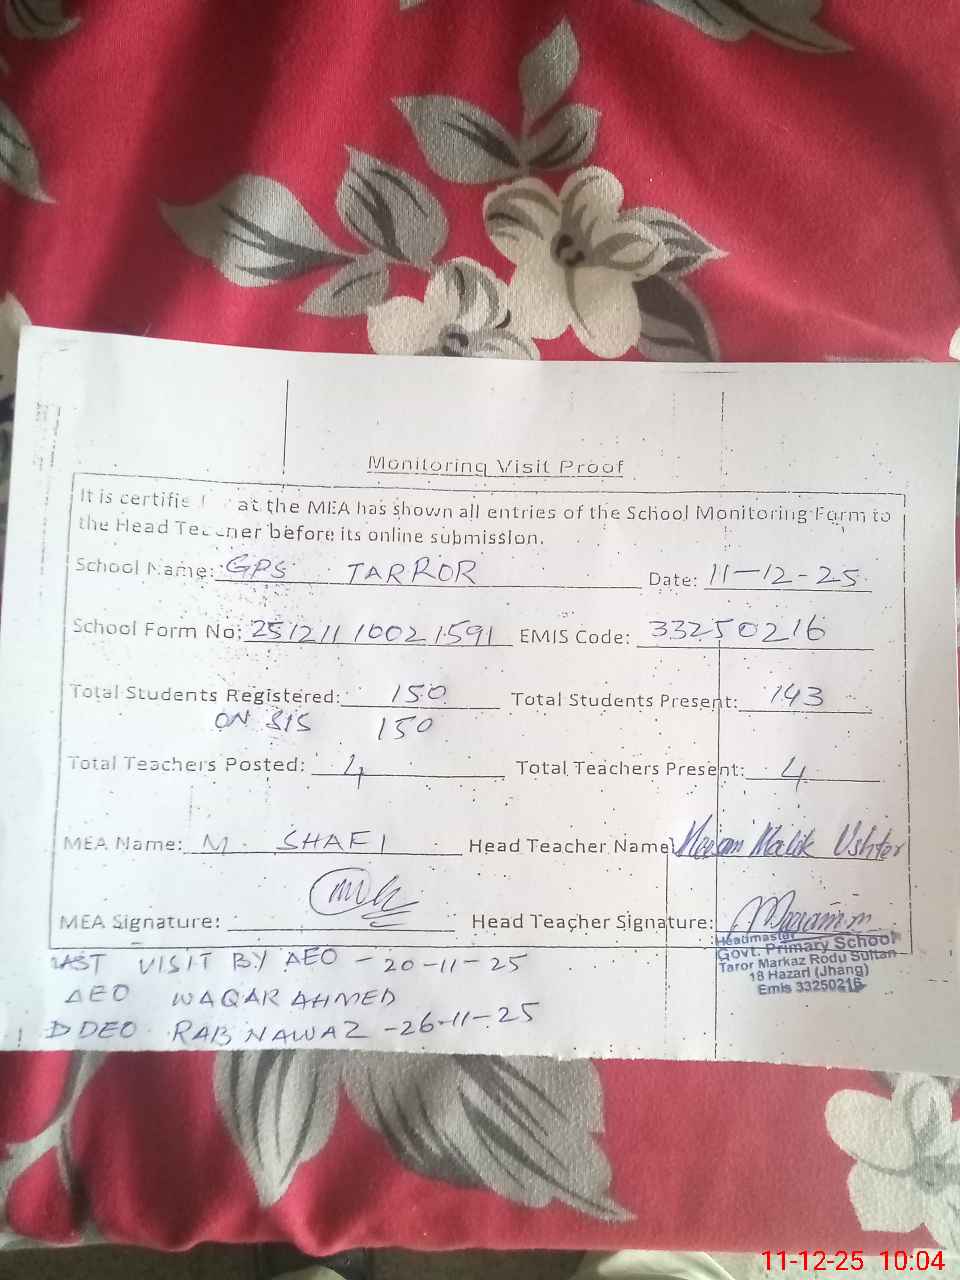 Monitoring Visit Proof
It is certifie at the MEA has shown all entries of the School Monitoring Form to
the Head Teacher before its online submission.
School Name: GPS TARROR Date: 11-12-25
School Form No: 251211 1002 1591 EMIS Code: 33250216
Total Students Registered: 150 Total Students Present: 143
ON SIS 150
Total Teachers Posted: 4 Total Teachers Present: 4
MEA Name: M. SHAFI Head Teacher Name Malik Ushter
MEA Signature: Head Teacher Signature:
Headmaster
Govt. Primary School
Taror Markaz Rodu Sultan
18 Hazari (Jhang)
Emis 33250216
LAST VISIT BY AEO - 20-11-25
AEO WAQAR AHMED
DDEO RAB NAWAZ - 26-11-25
11-12-25 10:04